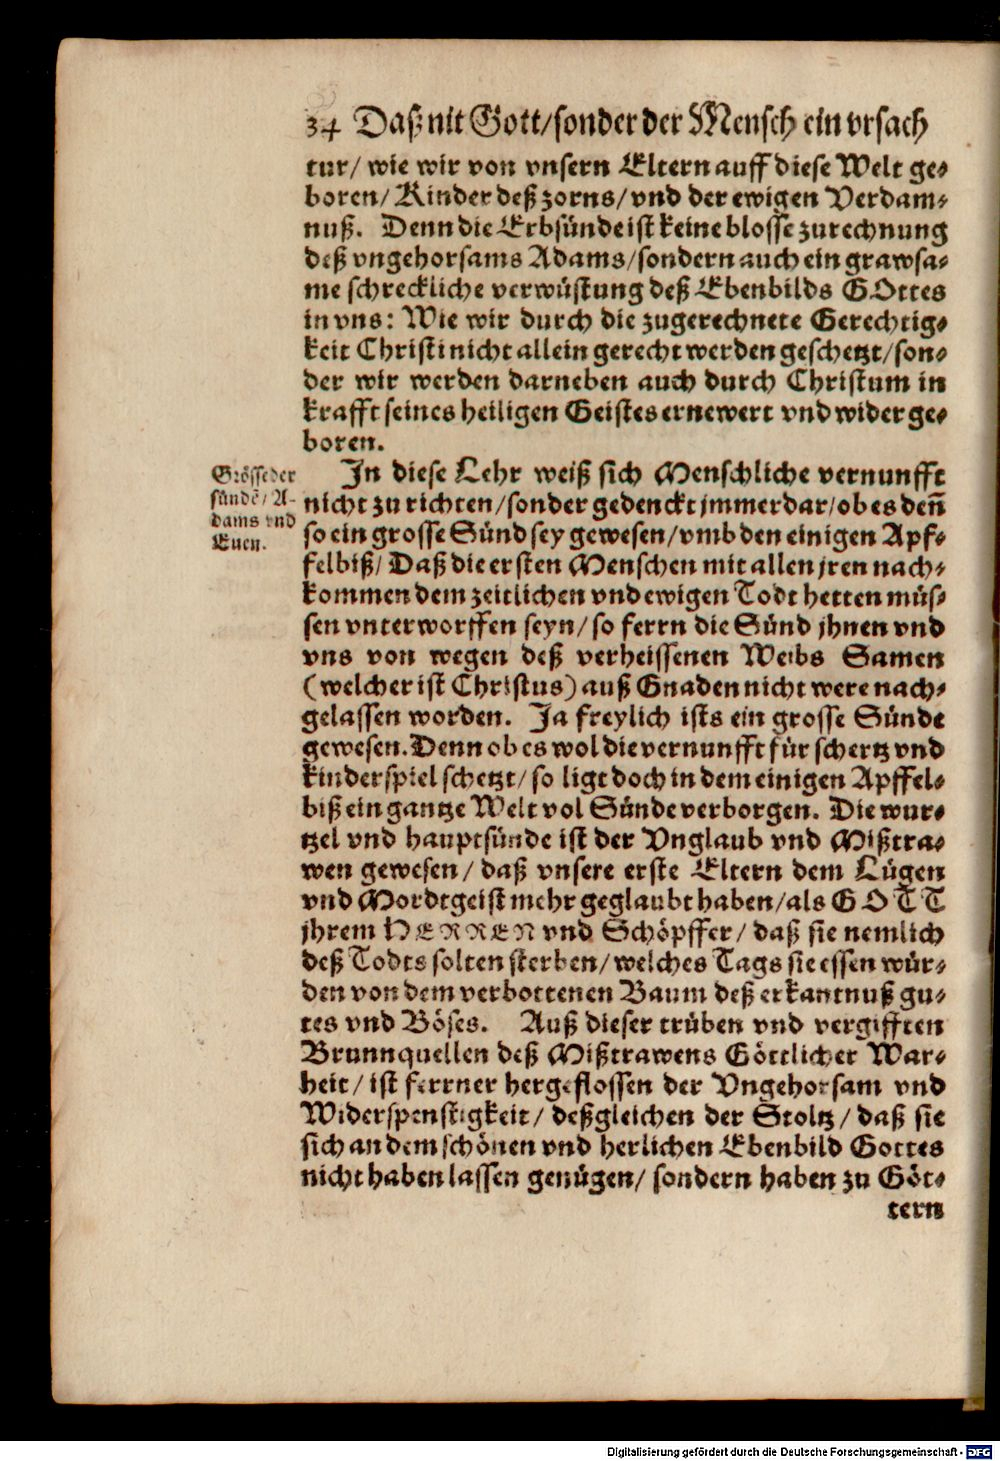 34 Daß nit Gott/ sonder der Mensch ein vrsach
tur/ wie wir von vnsern Eltern auff diese Welt ge-
boren/ Kinder deß zorns/ vnd der ewigen Verdam-
nuß. Denn die Erbsünde ist keine blosse zurechnung
deß vngehorsams Adams/ sondern auch ein grawsa-
me schreckliche verwüstung deß Ebenbilds GOttes
in vns: Wie wir durch die zugerechnete Gerechtig-
keit Christi nicht allein gerecht werden geschetzt/ son-
der wir werden darneben auch durch Christum in
krafft seines heiligen Geistes ernewert vnd wider ge-
boren.
Grösse der
sünde/ A-
dams vnd
Euen.
In diese Lehr weiß sich Menschliche vernunfft
nicht zu richten/ sonder gedenckt jmmerdar/ ob es deñ
so ein grosse Sünd sey gewesen/ vmb den einigen Apf-
felbiß/ Daß die ersten Menschen mit allen jren nach-
kommen dem zeitlichen vnd ewigen Todt hetten müs-
sen vnterworffen seyn/ so ferrn die Sünd jhnen vnd
vns von wegen deß verheissenen Weibs Samen
(welcher ist Christus) auß Gnaden nicht were nach-
gelassen worden. Ja freylich ists ein grosse Sünde
gewesen. Denn ob es wol die vernunfft für schertz vnd
kinderspiel schetzt/ so ligt doch in dem einigen Apffel-
biß ein gantze Welt vol Sünde verborgen. Die wur-
tzel vnd hauptsünde ist der Vnglaub vnd Mißtra-
wen gewesen/ daß vnsere erste Eltern dem Lügen
vnd Mordtgeist mehr geglaubt haben/ als GOTT
jhrem HERREN vnd Schöpffer/ daß sie nemlich
deß Todts solten sterben/ welches Tags sie essen wür-
den von dem verbottenen Baum deß erkantnuß gu-
tes vnd Böses. Auß dieser trüben vnd vergifften
Brunnquellen deß Mißtrawens Göttlicher War-
heit/ ist ferrner hergeflossen der Vngehorsam vnd
Widerspenstigkeit/ deßgleichen der Stoltz/ daß sie
sich an dem schönen vnd herlichen Ebenbild Gottes
nicht haben lassen genügen/ sondern haben zu Göt-
tern
Digitalisierung gefördert durch die Deutsche Forschungsgemeinschaft - DFG